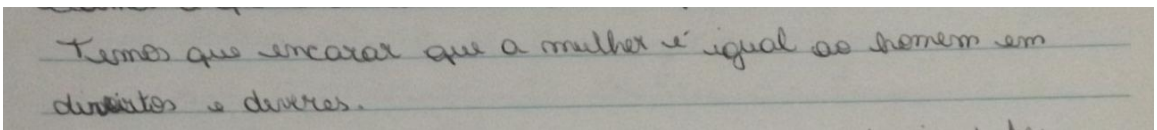 Temos que encarar que a mulher é igual ao homem em
direitos e deveres.